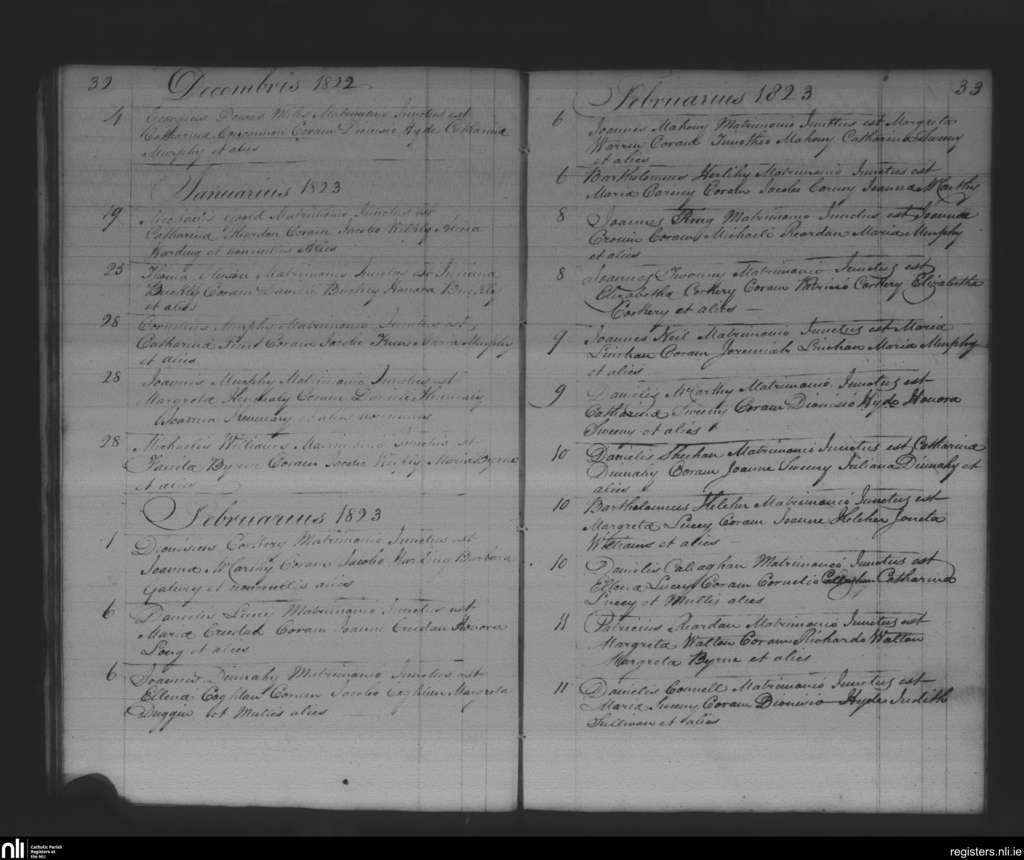 32
Decembris 1822
4 Georgius Dawes Miles Matrimonio Junctus est
Catharina Coram Dionisio Hyde Catharina
Murphy et aliis
Januarius 1823
19 Gould Matrimonio Junctus est
Catharina Riordan Coram Jacobo
Harding et nonnullis Aliis
25 Matrimonio Junctus est Juliana
Buckly Coram Daniele Buckley Honora Buckly
et aliis
28 Cornelius Murphy Matrimonio Junctus est
Catharina Coram Jacobo Maria Murphy
et aliis
28 Joannes Murphy Matrimonio Junctus est
Margreta Coram
Joanna et aliis
28 Michaelis Williams Matrimonio Junctus est
Byrne Coram Jacobo Maria Byrne
et aliis
Februarius 1823
1 Dionisius Corkery Matrimonio Junctus est
Joanna McCarthy Coram Jacobo Barbara
et nonnullis aliis
6 Danielis Lucey Matrimonio Junctus est
Maria Coram Joanne Honora
Long et aliis
6 Joannes Dinnahy Matrimonio Junctus est
Ellena Coghlan Coram Jacobo Coghlan Margreta
Duggin et Multis aliis
33
Februarius 1823
6 Joannes Mahony Matrimonio Junctus est Margreta
Warren Coram Timotheo Mahony Catharina
et aliis
6 Bartholomeus Herlihy Matrimonio Junctus est
Maria Carney Coram Jacobo Carney Joanna McCarthy
8 Joannes Ring Matrimonio Junctus est Joanna
Cronin Coram Michaele Reardan Maria Murphy
et aliis
8 Joannes Twomy Matrimonio Junctus est
Elizabetha Corkery Coram Patricio Corkery Elizabetha
Corkery et aliis —
9 Joannes Neil Matrimonio Junctus est Maria
Linehan Coram Jeremiah Linehan Maria Murphy
et aliis
9 Danielis McCarthy Matrimonio Junctus est
Catharina Sweeny Coram Dionisio Hyde Honora
Sweeny et aliis
10 Danielis Sheehan Matrimonio Junctus est Catharina
Dinnahy Coram Joanne Sweeny Juliana Dinnahy et
aliis
10 Bartholomeus Heleher Matrimonio Junctus est
Margreta Lucey Coram Joanne Heleher
Williams et aliis —
10 Danielis Callaghan Matrimonio Junctus est
Ellena Lucey Coram Cornelio Callaghan Catharina
Lucey et Multis aliis
11 Patricius Reardan Matrimonio Junctus est
Margreta Walton Coram Richardo Walton
Margreta Byrne et aliis
11 Danielis Connell Matrimonio Junctus est
Maria Sweeny Coram Dionisio Hyde Judith
Sullivan et aliis
nli
Catholic Parish
Registers at
the NLI
registers.nli.ie